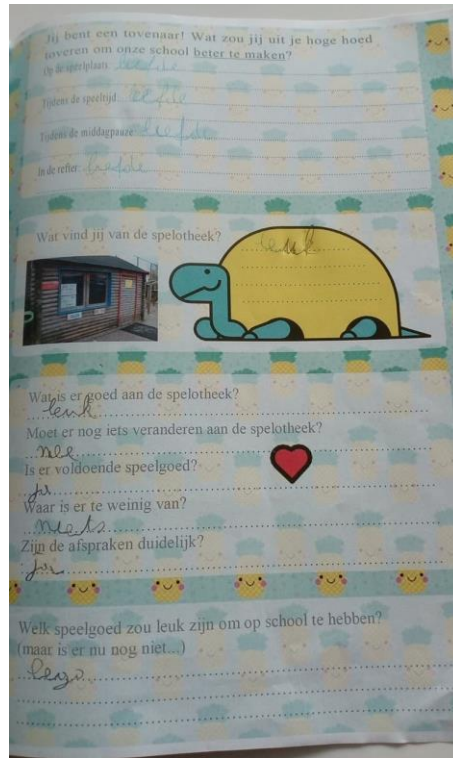 Jij bent een tovenaar! Wat zou jij uit je hoge hoed
toveren om onze school beter te maken?
Op de speelplaats: liefde
Tijdens de speeltijd: liefde
Tijdens de middagpauze: liefde
In de refter: liefde
Wat vind jij van de spelotheek?
leuk
Wat is er goed aan de spelotheek?
leuk
Moet er nog iets veranderen aan de spelotheek?
nee
Is er voldoende speelgoed?
ja
Waar is er te weinig van?
niets
Zijn de afspraken duidelijk?
ja
Welk speelgoed zou leuk zijn om op school te hebben?
(maar is er nu nog niet...)
lego